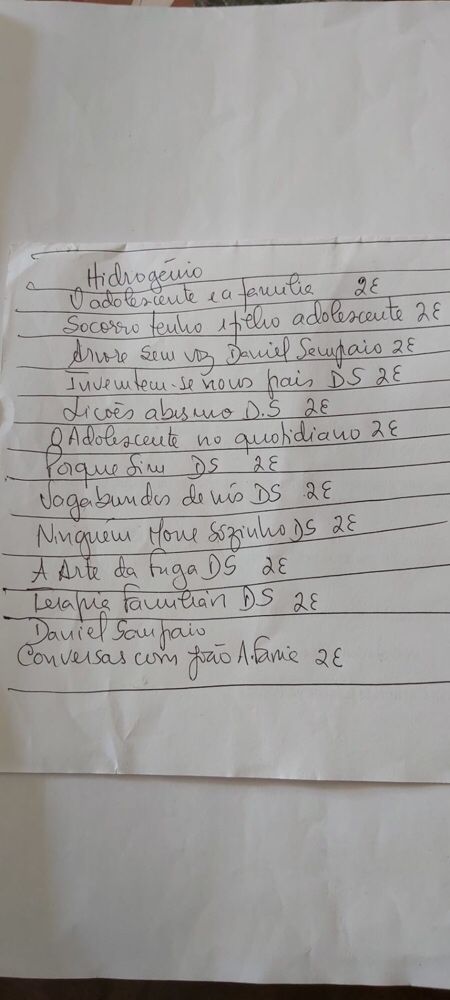 Hidrogénio
O adolescente e a familia 2€
Socorro tenho 1 filho adolescente 2€
Arvore Sem voz Daniel Sampaio 2€
Inventem-se novos pais DS 2€
Licoês abismo D.S 2€
O Adolescente no quotidiano 2€
Porque Sim DS 2€
Vagabundos de nós DS 2€
Ninguém Morre Sozinho DS 2€
A Arte da Fuga DS 2€
Terapia Familiar DS 2€
Daniel Sampaio
Conversas com João A. 2€